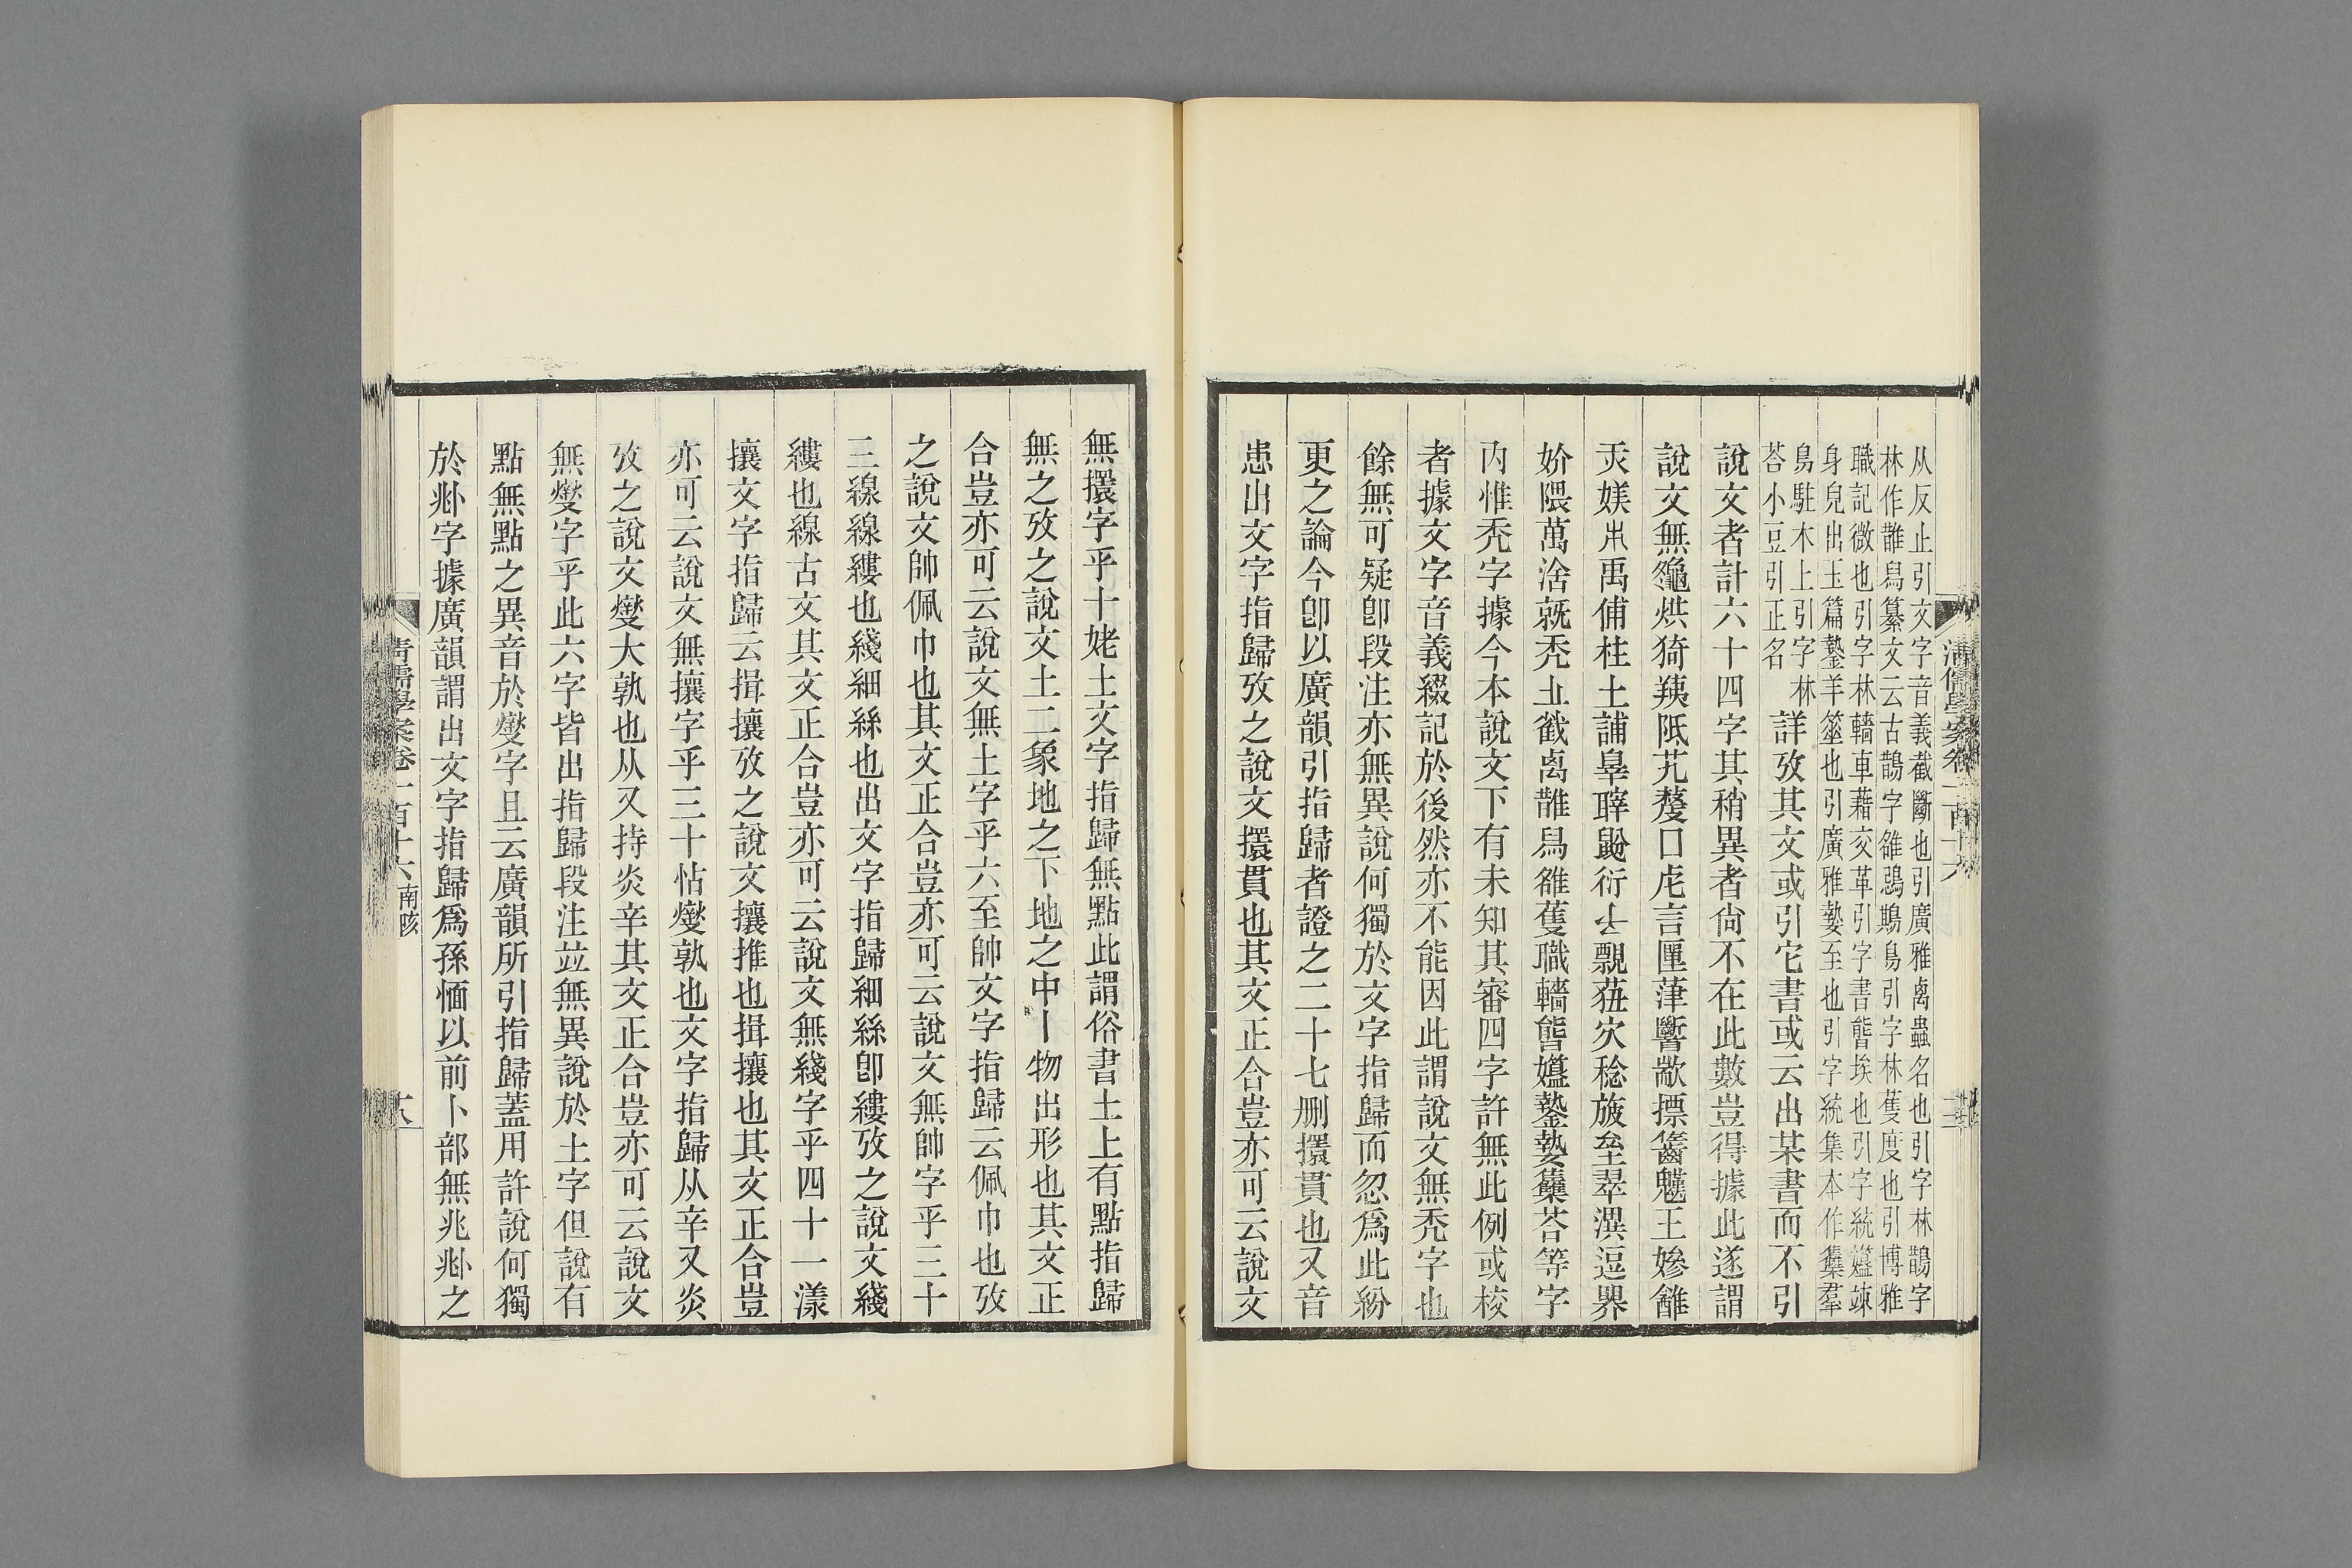 从反止引文字音義截斷也引廣雅禼蟲名也引字林鵲字
林作䧿舄纂文云古鵲字䧹鵶鷍鳥引字林蒦度也引博雅
職記微也引字林轖車藉交革引字書䭇埃也引字統㜸竦
身皃出玉篇鏊羊箠也引廣雅蓺至也引字統集本作雧羣
鳥駐木上引字林
荅小豆引正名
詳攷其文或引它書或云出某書而不引
說文者計六十四字其稍異者尙不在此數豈得據此遂謂
說文無龝烘猗羠阺艽嫠口虍言匰葏嚖敲摽籥魕王嫪雔
天媄朩禹俌柱土誧臯聹鼢衍𠫓飄莥穴稔旇垒翠潩逗畀
妎隈萬浛旤禿㐀截禼䧿舄䧹蒦職轖䭇㜸鏊蓺雧荅等字
內惟禿字據今本說文下有未知其審四字許無此例或梭
者據文字音義綴記於後然亦不能因此謂說文無禿字也
餘無可疑卽段注亦無異說何獨於文字指歸而忽爲此紛
更之論今卽以廣韻引指歸者證之二十七刪擐貫也又音
患出文字指歸攷之說文擐貫也其文正合豈亦可云說文
淸儒學案卷二百十六
無擐字乎十姥土文字指歸無點此謂俗書土上有點指歸
無之攷之說文土二象地之下地之中丨物出形也其文正
合豈亦可云說文無土字乎六至帥文字指歸云佩巾也攷
之說文帥佩巾也其文正合豈亦可云說文無帥字乎三十
三線線縷也綫細絲也出文字指歸細絲卽縷攷之說文綫
縷也線古文其文正合豈亦可云說文無綫字乎四十一漾
攘文字指歸云揖攘攷之說文攘推也揖攘也其文正合豈
亦可云說文無攘字乎三十怗燮孰也文字指歸从辛又炎
攷之說文燮大孰也从又持炎辛其文正合豈亦可云說文
無燮字乎此六字皆出指歸段注竝無異說於土字但說有
點無點之異音於燮字且云廣韻所引指歸蓋用許說何獨
於𠧞字據廣韻謂出文字指歸爲孫愐以前卜部無兆𠧞之
淸儒學案卷二百十六 南畡 十八